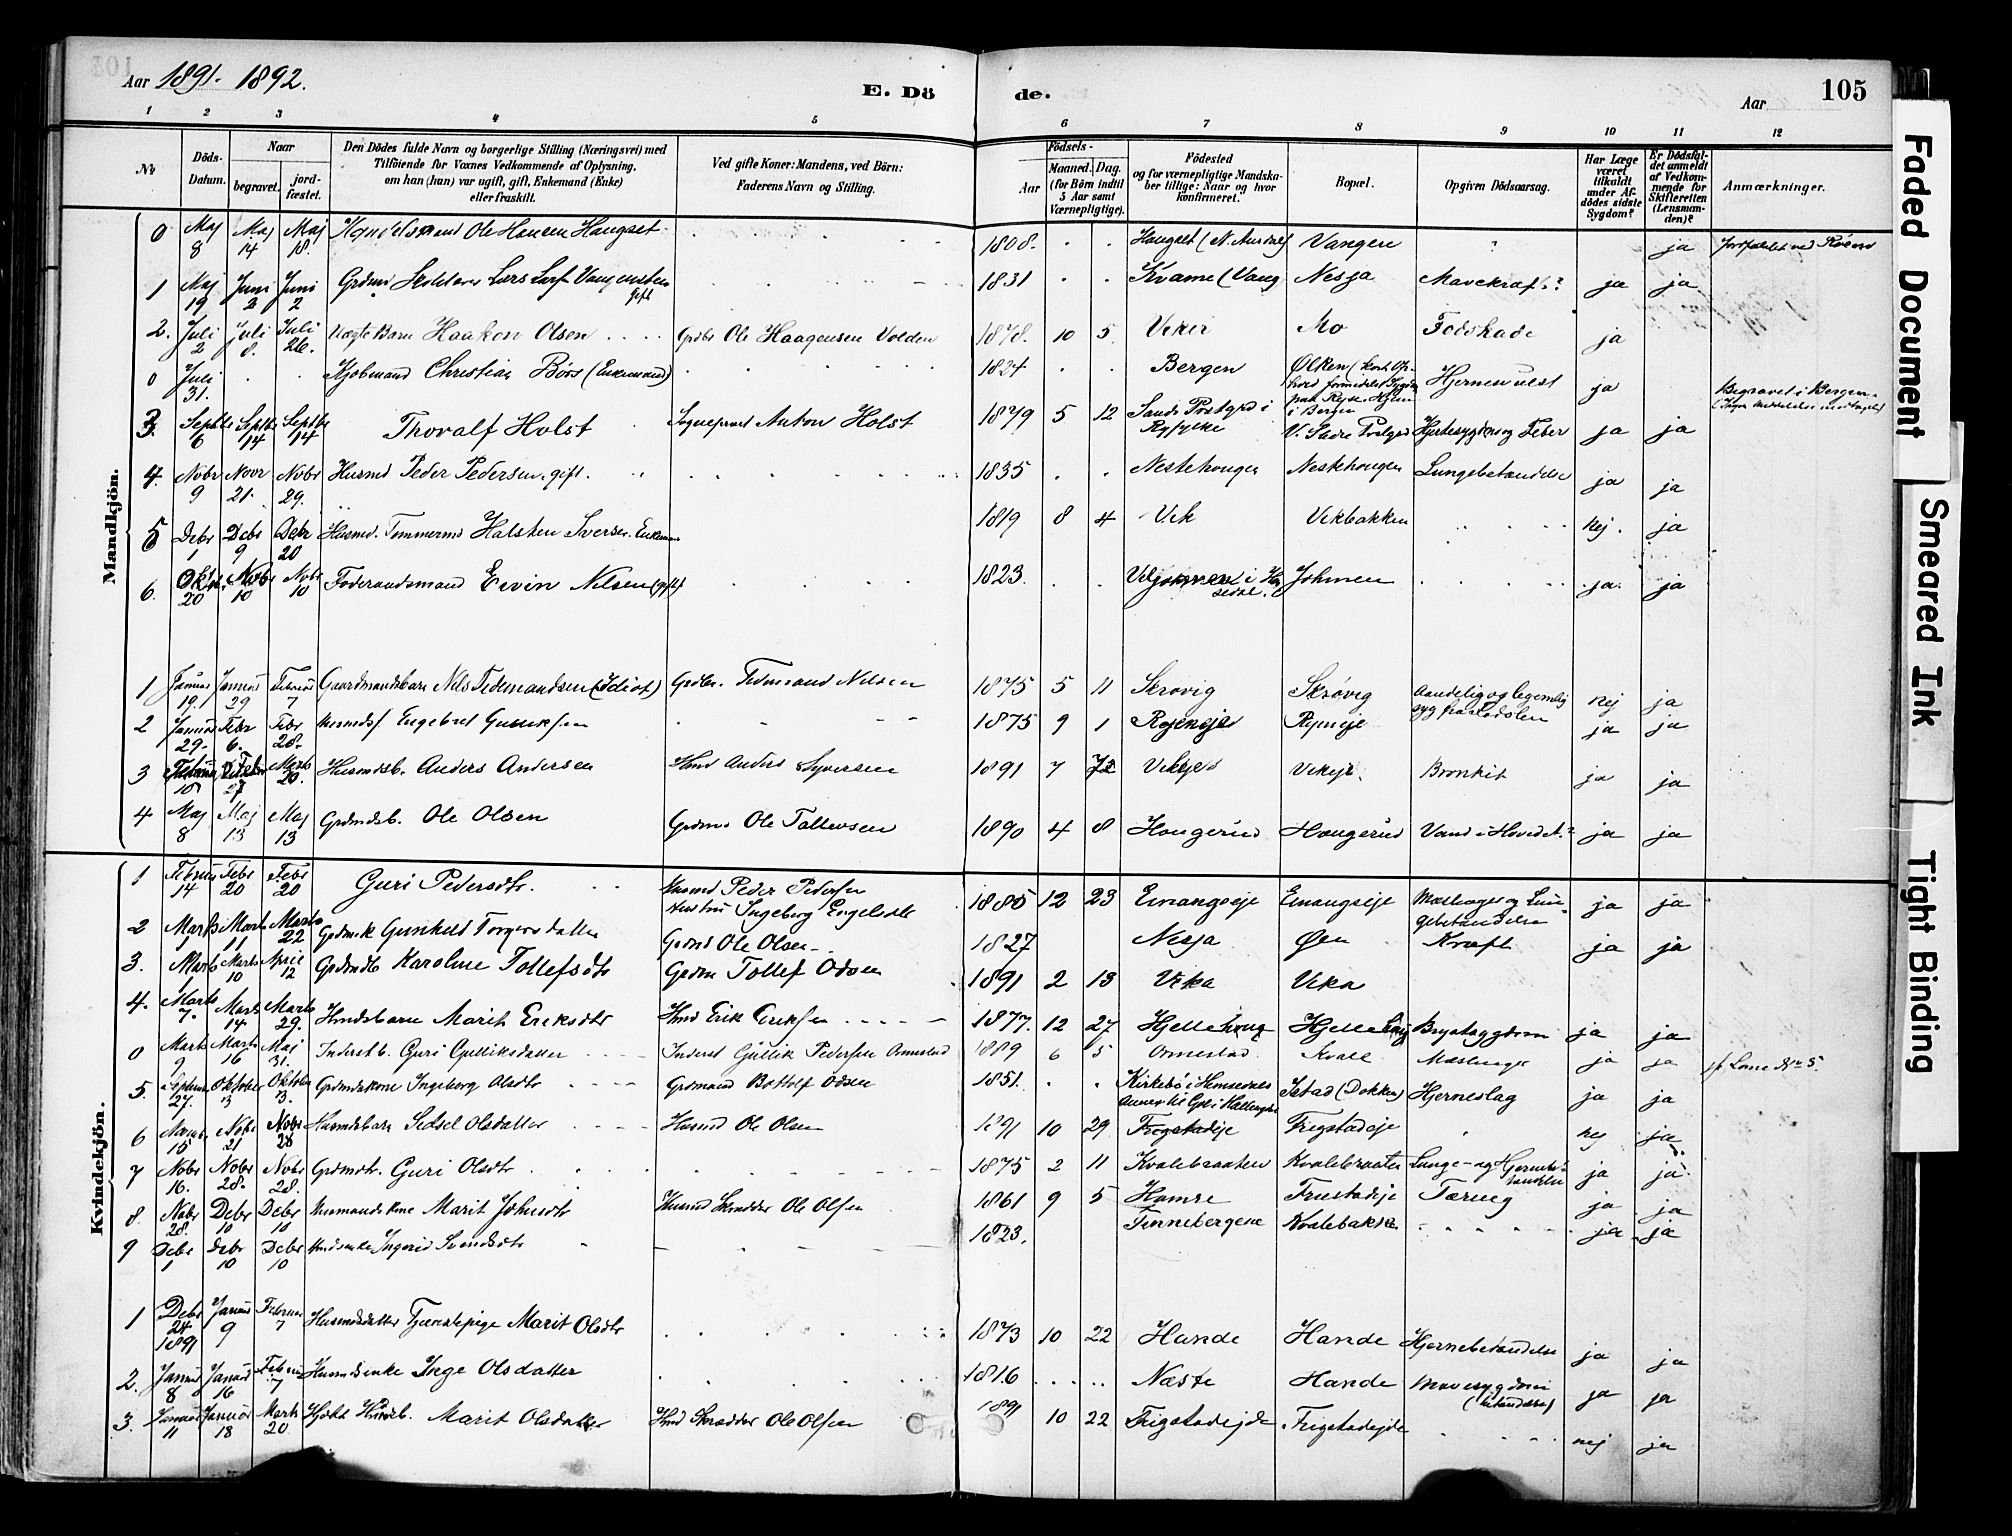 Aar 1891- 1892.
E. Dö de.
Aar 105
1 2 3 4 5 6 7 8 9 10 11 12
No
Döds-Datum.
Naar
begravet.
jord-fæstet.
Den Dödes fulde Navn og borgerlige Stilling (Næringsvei) med
Tilföiende for Voxnes Vedkommende af Oplysning,
om han (hun) var ugift, gift, Enkemand (Enke)
eller fraskilt.
Ved gifte Koner: Mandens, ved Börn:
Faderens Navn og Stilling.
Födsels-
Aar
Maaned. Dag.
(for Börn indtil
5 Aar samt
Værnepligtige).
Födested
og for værnepligtige Mandska-
ber tillige: Naar og hvor
konfirmeret.
Bopæl.
Opgiven Dödsaarsag.
Har Læge
været
tilkaldt
under Af-
dødes sidste
Sygdom?
Er Dödsfal-
det anmeldt
af Vedkom-
mende for
Skifteretten
(Lensman-
den)?
Anmærkninger.
Mandkjön.
0 Maj 8 Maj 14 Maj 18. Ole Hansen Haugset 1808. Haugset (N. Aurdal) Vangen ja
1 Maj 19 Juni 2 Juni 2 Lars Vangensten gift 1831 Kvame (Vang Nesja Mavekraft? ja ja
2. Juli 2 Juli 8. Juli 26. Haakon Olsen Grdbr Ole Haagensen Volden 1878. 10 5 Veker Mo Fodskade ja
0 Juli 31. Kjøbmand Christian Börs (Enkemand) 1824 Bergen Ølken i Bergen ja Begravet i Bergen
3. Septbr 6 Septbr 14 Septbr 14 Thoralf Holst Sognepræst Anton Holst 1879 5 12 Sands Prstgrd i Ryfylke V. Slidre Prstgrd Hjertesygdom og Feber ja ja
4. Nobr 9 Novr 21. Nobr 29. Husmd Peder Pedersen, gift 1835 Nestehougen Nestehougen Lungebetændelse ja ja
5 Debr 1 Debr 9 Debr 20 Husmd. Tømmermd Halsten Iversen. Enkem 1819 8 4 Vik Vikbakken nej. ja
6. Oktbr. 20 Nobr 10 Nobr 10 Foderaadsmand Eivin Nilsen (gift) 1823. Johmen ja. ja
1 Januar 19. Januar 29 Februar 7 Gaardmandsbarn Nils Tidemandsen (Idiot) Grdbr. Tidemand Nilsen 1875 5 11 Skrøvig Skrøvig Aandelig og legemlig syg fra Fødselen nej ja
2 Januar 29. Febr 6. Febr 28. Engebret Gulliksen 1875 9 1 Ryeneje ja ja
3 Februar 27 Marts 20. Husmdsb. Anders Andersen Hmd Anders Syversen 1891 7 Vekeje Bronkit ja ja
4 Maj 8 Maj 13 Maj 13 Grdmdsb. Ole Olsen Grdmd Ole Tollevsen 1890 4 8 Hougerud Hougerud Vand i Hovedet? ja ja
Kvindekjön.
1 Februar 14 Febr 20 Febr 20 Guri Pedersdtr. Husmd Peder Pedersen Hustru Ingeborg 1885 12 23 Einangseje Einangseje Mæslinger og Lungebetændelse ja ja
2 Marts 1 Marts 11 Marts 22 Gunhild Torgersdatter Grdmd Ole Olsen 1827 Nesja Øen Kræft ja ja
3. Marts 1 Marts 10 April 12 Grdmdb Karoline Tollefsdtr Grdm Tollef Odsen 1891 2 13 Veka Veka
4. Marts 7. Marts 14 Marts 29. Hmdsbarn Marit Eriksdtr Hmd Erik Eriksen 1877. 12 27 Hjellehaug Hjellehaug Brystsygdom ja ja
0 Marts 9 Marts 16 Maj 31. Inderstb. Guri Gulliksdatter Inderst Gullik Pedersen Ormestad 1889 6 5 Ormestad Kvale Mæslinger ja ja
5. Septembr 27. Oktober 13 Oktober 13. Grdmdskone Ingeborg Olsdtr Grdmand Bottolf Odsen 1851. Kirkebö i Hemsedal Annex til Gol i Hallingdal Istad (Dokken) Hjerneslag ja ja
6 15 Nobr 21 Nobr 28 Husmdsbarn Sidsel Olsdatter Husmd Ole Olsen 1891 10 29 Frigstadeje Frigstadeje nej ja
7 Nobr 16. Nobr 28. Nobr 28. Grdmdtr. Guri Olsdtr 1875 2 11 Kvalebraaten Kvalebraaten Lunge- og Hjernebetændelse ja ja.
8. Nobr 28. Debr 10 Debr 10 Husmandskone Marit Johnsdtr Husmd Skrædder Ole Olsen 1861 9 5 Hamre Tæring ja ja
9 Debr 1 Debr 10 Debr 10 Ingerid Svendsdtr 1823. Kvalebakken ja ja
1 Debr 24 1891 Januar 9 Februar 7 Husmdsdatter Tjenestepige Marit Olsdtr 1873 10 22 Hande Hande Hjernebetændelse ja ja
2. Januar 8 Januar 16 Februar 7 Husmdsenke Inge Olsdatter 1816 Næste Hande Mavesygdom ja ja
3. Januar 11 Januar 18 Marts 20 Marit Olsdatter Hmd Skrædder Ole Olsen 1891 10 22 Frigstadejde Frigstadejde nej ja
Faded Document
Smeared Ink
Tight Binding